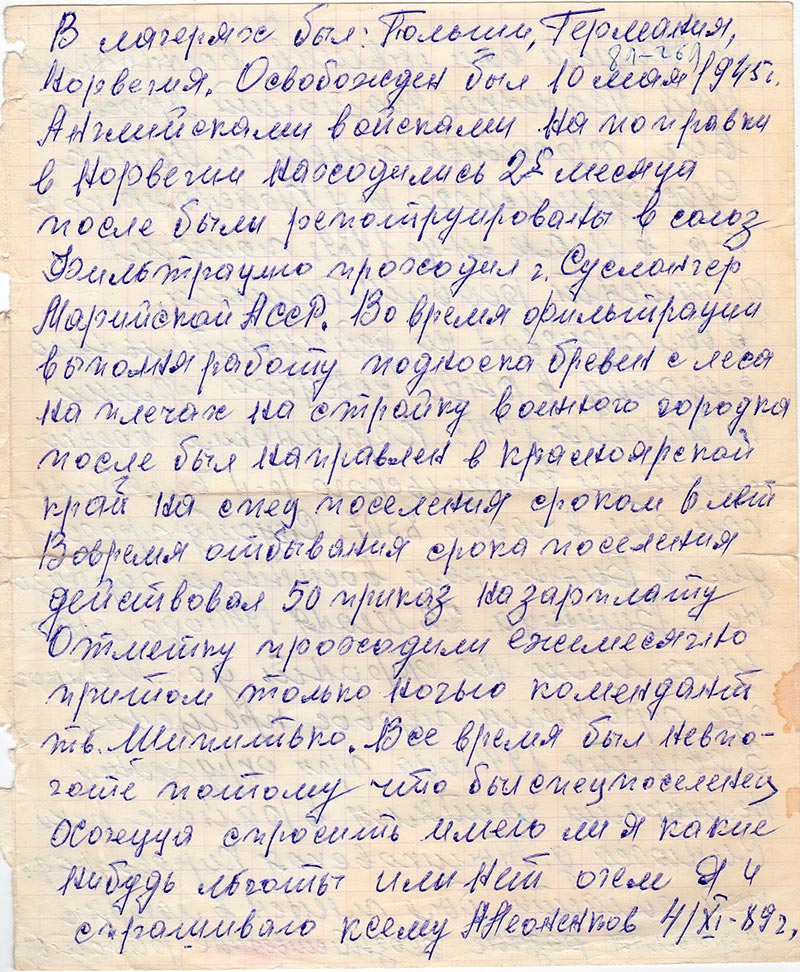 В лагерях был: Польши, Германия,
81-261
Норвегия. Освобожден был 10 мая 1945г.
Английсками войсками на поправки
в Норвегии находились 2,5 месяца
после были репотруированы в союз
Фильтрацию проходил г. Суслангер
Марийской АССР. Во время фильтрации
выполня работу подноска бревен с леса
на плечах на стройку военного городка
после был направлен в красноярской
край на спец поселения сроком 6 лет
Вовремя отбывания срока поселения
действовал 50 приказ на зарплату
Отметку проходили ежемесячно
притом только ночью комендант
тв. Все время был невпо-
чоте потому что был спецпоселенец
Хочеця спросить имею ли я какие
нибудь льготы или нет очем Я и
спрашиваю ксему 4/XI-89г.